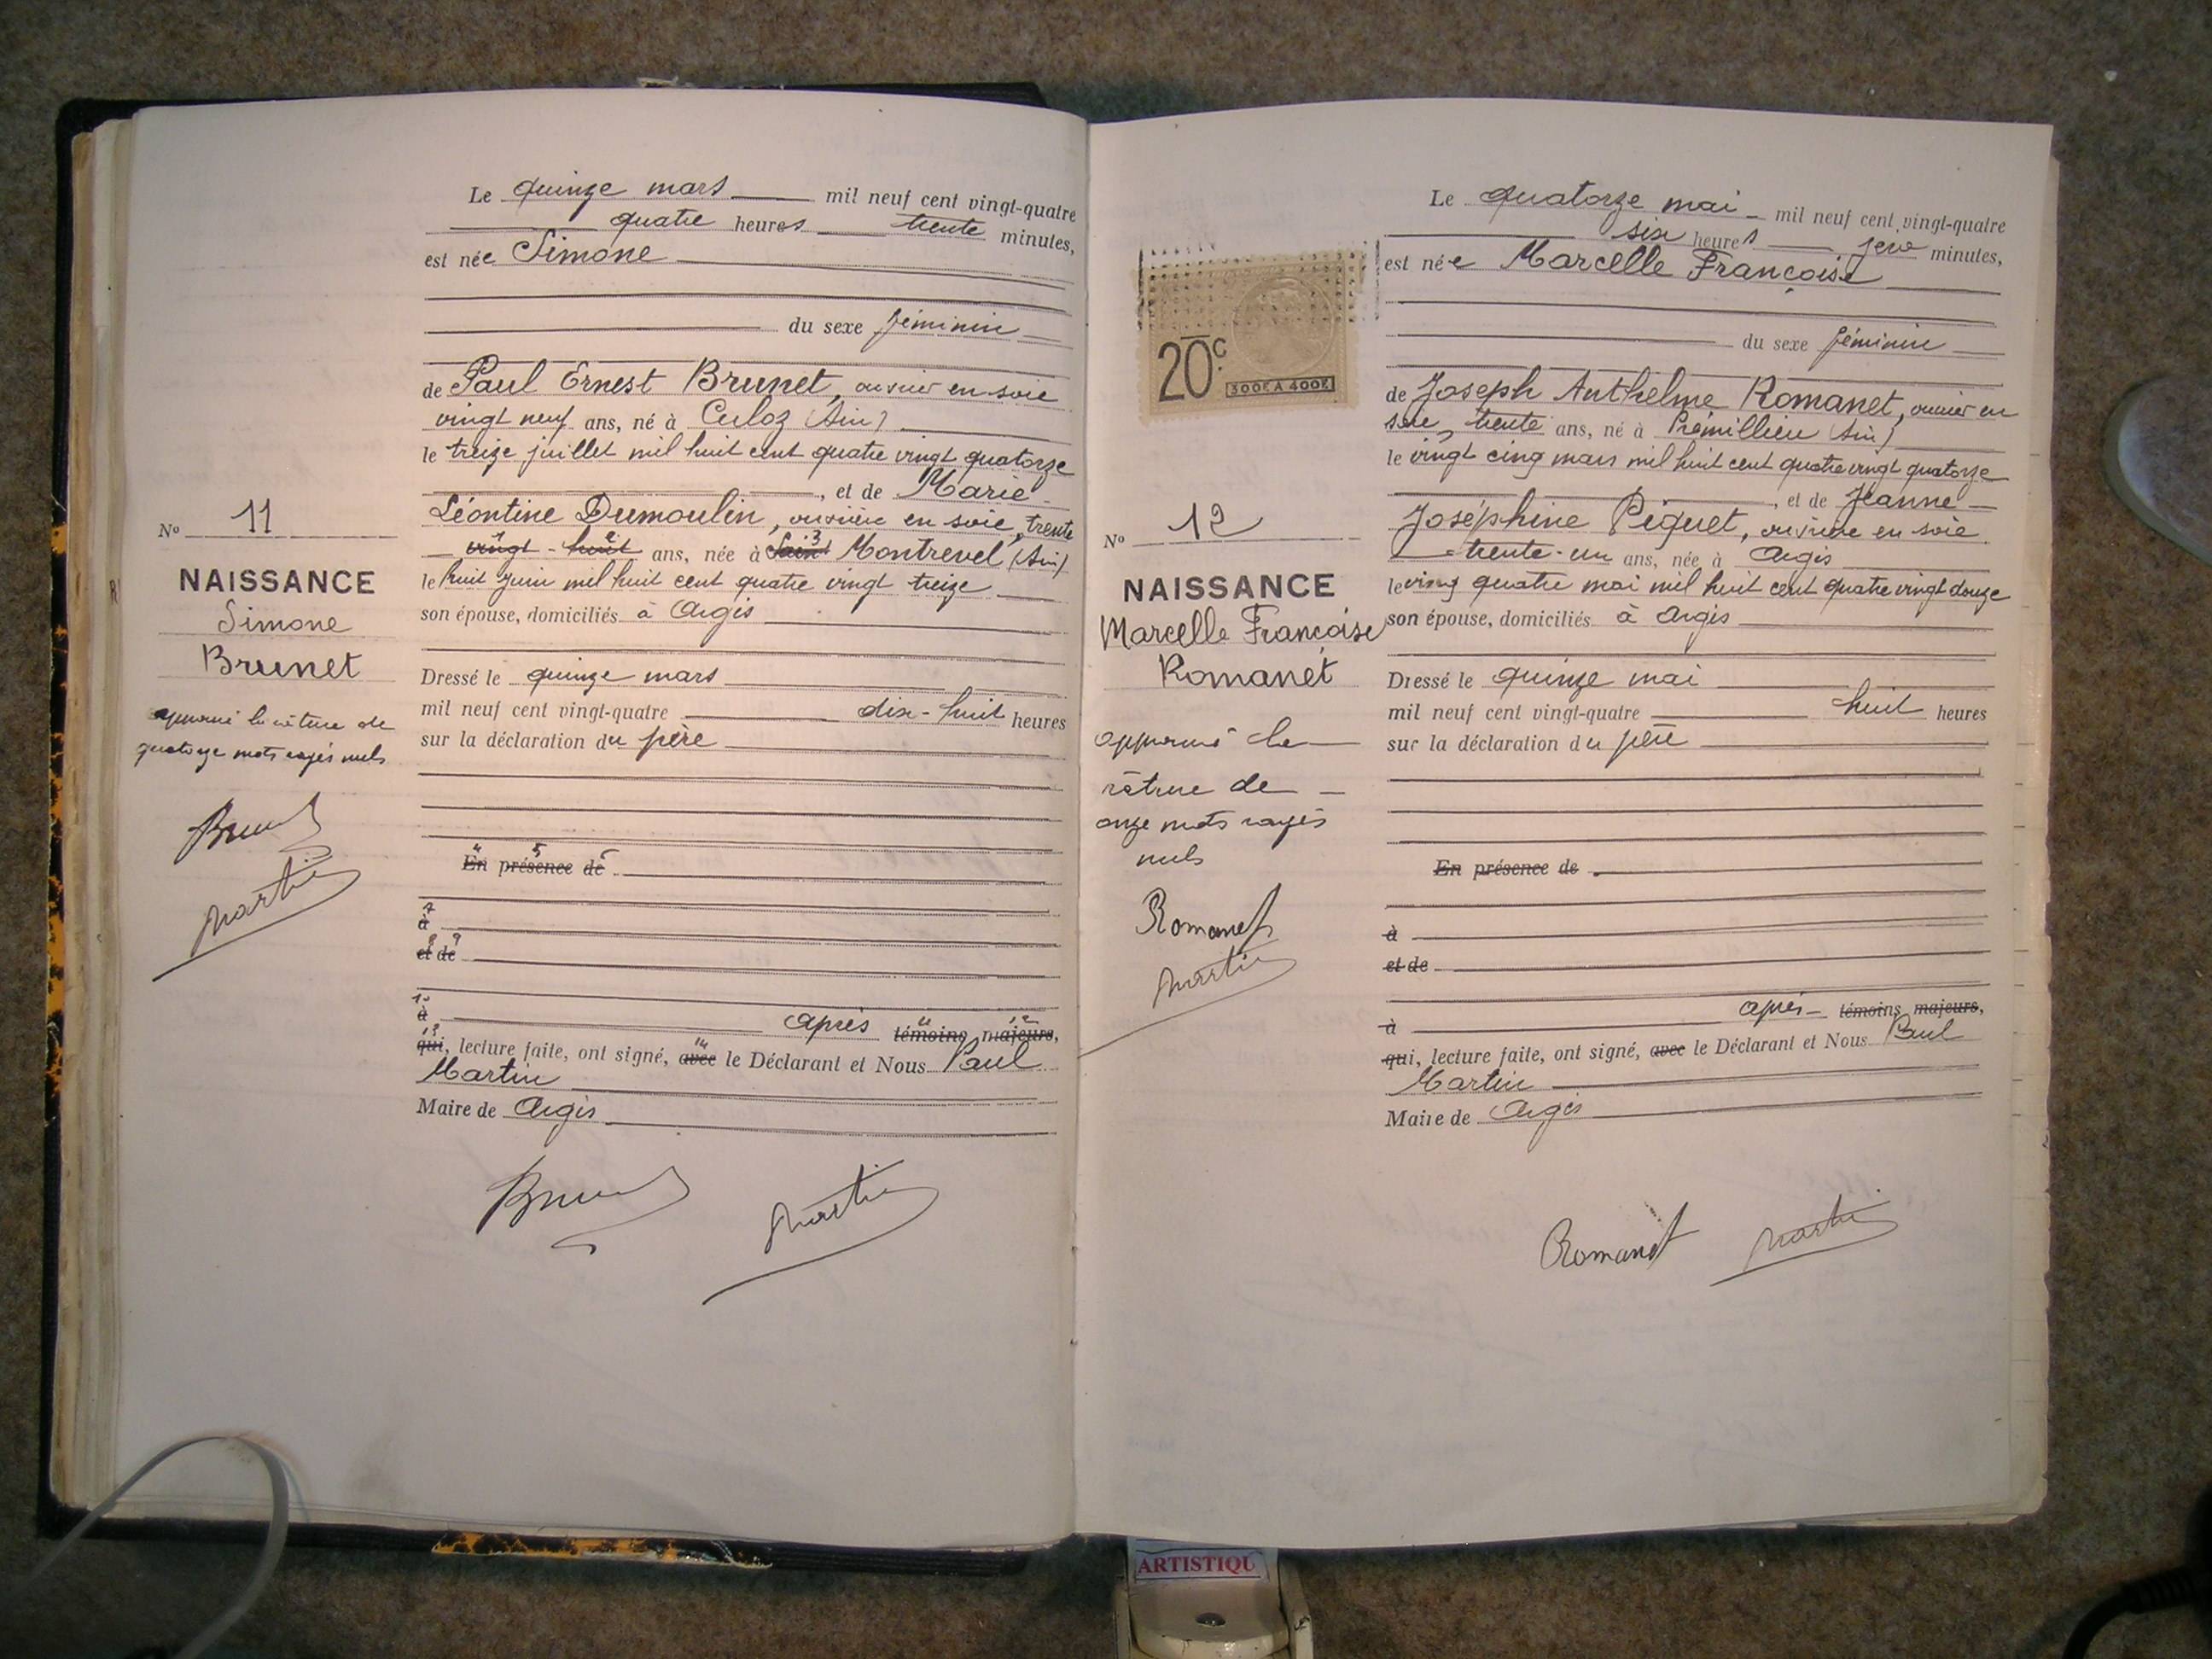 Le quinze mars mil neuf cent vingt-quatre
quatre heures trente minutes,
est née Simone
du sexe féminin
de Paul Ernest Brunet, ouvrier en soie
vingt neuf ans, né à Culoz (Ain)
le treize juillet mil huit cent quatre vingt quatorze
, et de Marie
Léontine Dumoulin, ouvrière en soie, trente
vingt-huit ans, née à Saint Montrevel (Ain)
le huit juin mil huit cent quatre vingt treize
son épouse, domiciliés à Argis
Dressé le quinze mars
mil neuf cent vingt-quatre dix-huit heures
sur la déclaration du père
En présence de
à
et de
à après témoins majeurs,
qui, lecture faite, ont signé, avec le Déclarant et Nous Paul
Martin
Maire de Argis
Brunet Martin
No 11
NAISSANCE
Simone
Brunet
de
quatorze mots rayés nuls
Brunet
Martin
Le quatorze mai mil neuf cent vingt-quatre
six heures zero minutes,
est née Marcelle Françoise
du sexe féminin
de Joseph Anthelme Romanet, ouvrier en
soie, trente ans, né à Prémillieu (Ain)
le vingt cinq mars mil huit cent quatre vingt quatorze
, et de Jeanne
Joséphine Péguet, ouvrière en soie
trente-un ans, née à Argis
le vingt quatre mai mil huit cent quatre vingt douze
son épouse, domiciliés à Argis
Dressé le quinze mai
mil neuf cent vingt-quatre huit heures
sur la déclaration du père
En présence de
à
et de
à après témoins majeurs,
qui, lecture faite, ont signé, avec le Déclarant et Nous Paul
Martin
Maire de Argis
Romanet Martin
20c.
300F A 400F
No 12
NAISSANCE
Marcelle Françoise
Romanet
approuvé la
rature de
onze mots rayés
nuls
Romanet
Martin
ARTISTIQU